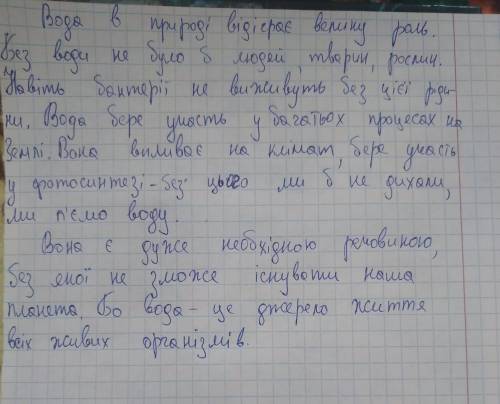 Вода в природі відіграє велику роль.
Без води не було б людей, тварин, рослин.
Навіть бактерії не виживуть без цієї ріди-
ни. Вода бере участь у багатьох процесах на
Землі. Вона впливає на клімат, бере участь
у фотосинтезі - без цього ми б не дихали,
ми п'ємо воду.
Вона є дуже необхідною речовиною,
без якої не зможе існувати наша
планета. Бо вода - це джерело життя
всіх живих організмів.